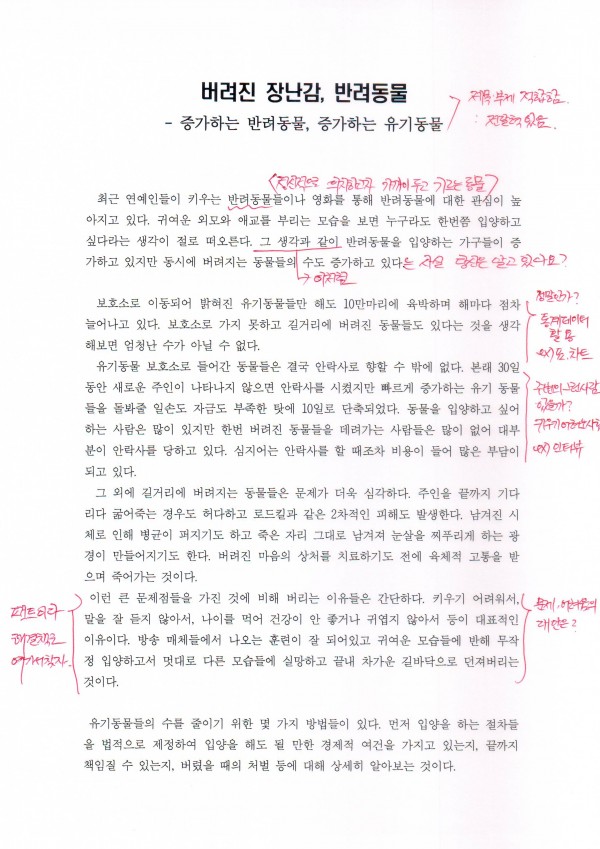 버려진 장난감, 반려동물
- 증가하는 반려동물, 증가하는 유기동물
제목·부제 적합함.
: 전달력 있음.
<정신적으로 의지하고자 가까이 두고 기르는 동물>
최근 연예인들이 키우는 반려동물들이나 영화를 통해 반려동물에 대한 관심이 높
아지고 있다. 귀여운 외모와 애교를 부리는 모습을 보면 누구라도 한번쯤 입양하고
싶다라는 생각이 절로 떠오른다. 그 생각과 같이 반려동물을 입양하는 가구들이 증
가하고 있지만 동시에 버려지는 동물들의 수도 증가하고 있다는 사실 당신은 알고 있나요?
이처럼
보호소로 이동되어 밝혀진 유기동물들만 해도 10만마리에 육박하며 해마다 점차
늘어나고 있다. 보호소로 가지 못하고 길거리에 버려진 동물들도 있다는 것을 생각
해보면 엄청난 수가 아닐 수 없다.
정말인가?
통계데이터
활용
ex) 표, 차트
유기동물 보호소로 들어간 동물들은 결국 안락사로 향할 수 밖에 없다. 본래 30일
동안 새로운 주인이 나타나지 않으면 안락사를 시켰지만 빠르게 증가하는 유기 동물
들을 돌봐줄 일손도 자금도 부족한 탓에 10일로 단축되었다. 동물을 입양하고 싶어
하는 사람은 많이 있지만 한번 버려진 동물들을 데려가는 사람들은 많이 없어 대부
분이 안락사를 당하고 있다. 심지어는 안락사를 할 때조차 비용이 들어 많은 부담이
되고 있다.
주변의 그런사람
있을까?
키우기
ex) 인터뷰
그 외에 길거리에 버려지는 동물들은 문제가 더욱 심각하다. 주인을 끝까지 기다
리다 굶어죽는 경우도 허다하고 로드킬과 같은 2차적인 피해도 발생한다. 남겨진 시
체로 인해 병균이 퍼지기도 하고 죽은 자리 그대로 남겨져 눈살을 찌푸리게 하는 광
경이 만들어지기도 한다. 버려진 마음의 상처를 치료하기도 전에 육체적 고통을 받
으며 죽어가는 것이다.
이런 큰 문제점들을 가진 것에 비해 버리는 이유들은 간단하다. 키우기 어려워서,
말을 잘 듣지 않아서, 나이를 먹어 건강이 안 좋거나 귀엽지 않아서 등이 대표적인
이유이다. 방송 매체들에서 나오는 훈련이 잘 되어있고 귀여운 모습들에 반해 무작
정 입양하고서 멋대로 다른 모습들에 실망하고 끝내 차가운 길바닥으로 던져버리는
것이다.
팩트이라
해결책도
여기서찾자.
문제·어려움의
대안은?
유기동물들의 수를 줄이기 위한 몇 가지 방법들이 있다. 먼저 입양을 하는 절차들
을 법적으로 제정하여 입양을 해도 될 만한 경제적 여건을 가지고 있는지, 끝까지
책임질 수 있는지, 버렸을 때의 처벌 등에 대해 상세히 알아보는 것이다.